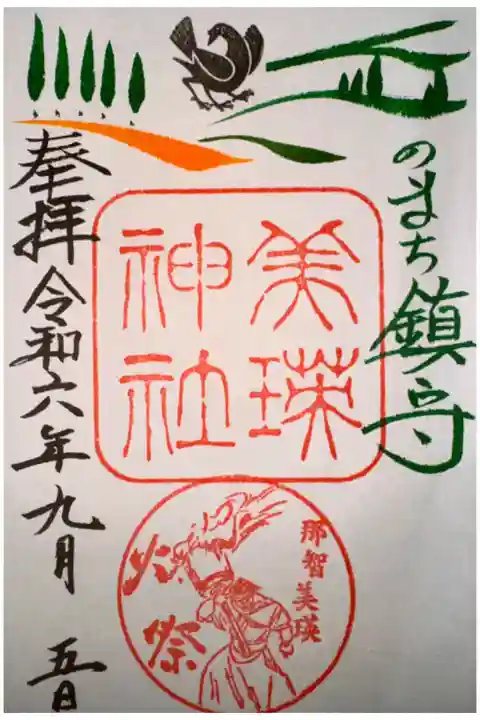 のまち鎮守
美瑛
神社
奉拝 令和六年九月 五日
那智美瑛
火祭